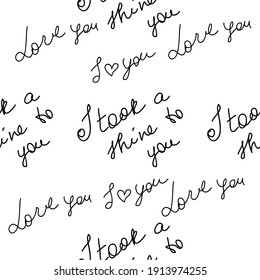 Love you took a shine to you Love you
I♡you
took a shine to you I took a shine to you I took shine you
Love you I♡you Love you
I took a shine to
1913974255